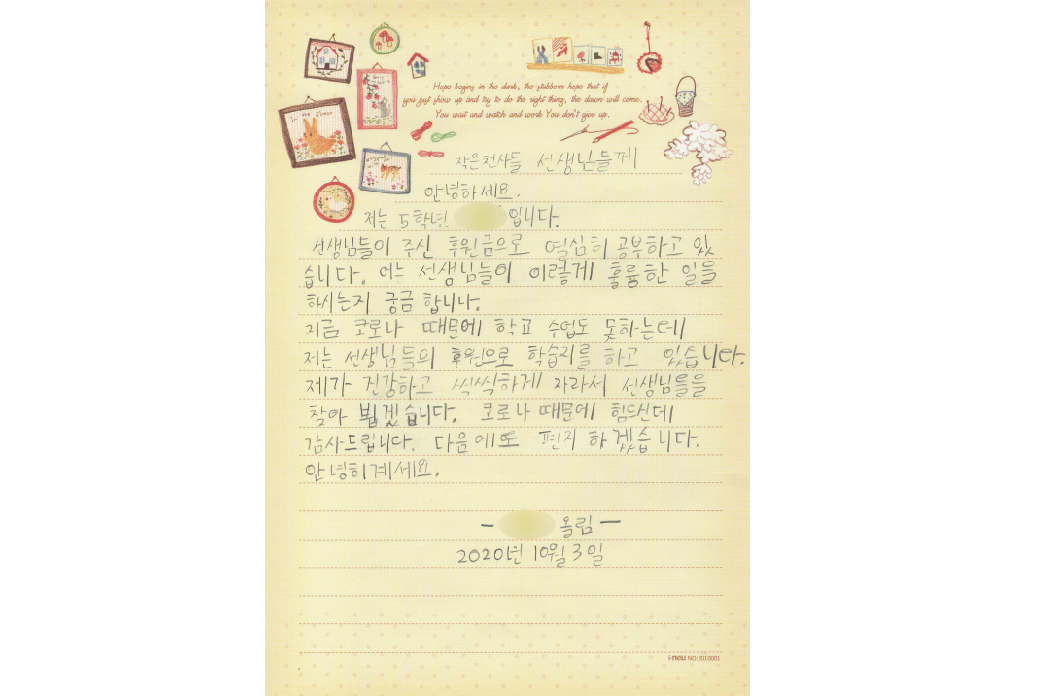 Hope begins in the dark, the stubborn hope that if
you just show up and try to do the right thing, the dawn will come.
You wait and watch and work You don't give up.
작은천사들 선생님들께
안녕하세요.
저는 5학년 입니다.
선생님들이 주신 후원금으로 열심히 공부하고 있
습니다. 어느 선생님들이 이렇게 훌륭한 일을
하시는지 궁금합니다.
지금 코로나 때문에 학교 수업도 못하는데
저는 선생님들의 후원으로 학습지를 하고 있습니다.
제가 건강하고 씩씩하게 자라서 선생님들을
찾아 뵙겠습니다. 코로나 때문에 힘드신데
감사드립니다. 다음에도 편지 하겠습니다.
안녕히계세요.
- 올림 -
2020년 10월 3일
i-neu NO:f010001